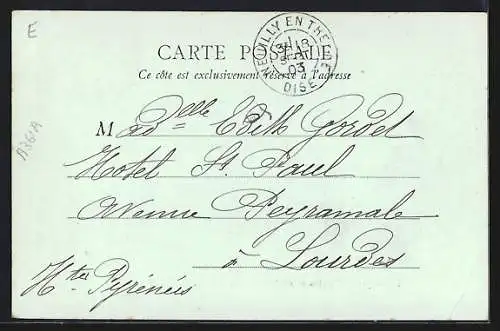 E
CARTE POSTALE
Ce côté est exclusivement réservé à l'adresse
NEUILLY EN THELLE
SEPT
03
OISE
Mad^elle Edith Gordet
Hotel St. Paul
Avenue Peyramale
à Lourdes
Htes Pyrénées